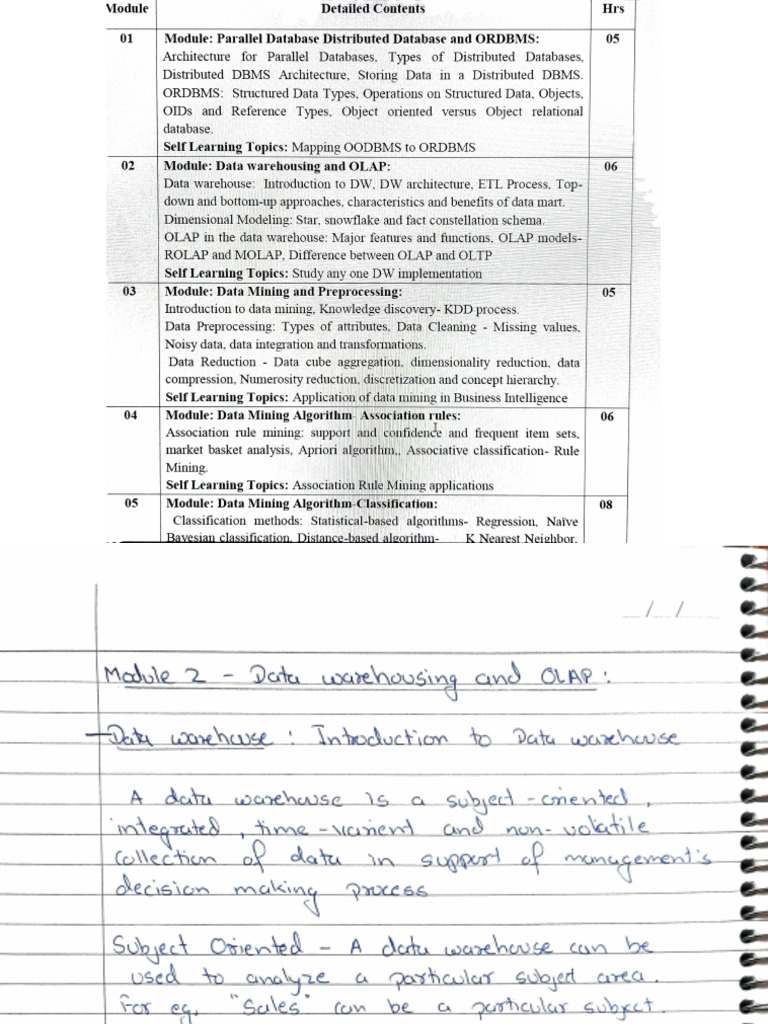 Module Detailed Contents Hrs
01 Module: Parallel Database Distributed Database and ORDBMS: 05
Architecture for Parallel Databases, Types of Distributed Databases,
Distributed DBMS Architecture, Storing Data in a Distributed DBMS.
ORDBMS: Structured Data Types, Operations on Structured Data, Objects,
OIDs and Reference Types, Object oriented versus Object relational
database.
Self Learning Topics: Mapping OODBMS to ORDBMS
02 Module: Data warehousing and OLAP: 06
Data warehouse: Introduction to DW, DW architecture, ETL Process, Top-
down and bottom-up approaches, characteristics and benefits of data mart.
Dimensional Modeling: Star, snowflake and fact constellation schema.
OLAP in the data warehouse: Major features and functions, OLAP models-
ROLAP and MOLAP, Difference between OLAP and OLTP
Self Learning Topics: Study any one DW implementation
03 Module: Data Mining and Preprocessing: 05
Introduction to data mining, Knowledge discovery- KDD process.
Data Preprocessing: Types of attributes, Data Cleaning - Missing values,
Noisy data, data integration and transformations.
Data Reduction - Data cube aggregation, dimensionality reduction, data
compression, Numerosity reduction, discretization and concept hierarchy.
Self Learning Topics: Application of data mining in Business Intelligence
04 Module: Data Mining Algorithm- Association rules: 06
Association rule mining: support and confidence and frequent item sets,
market basket analysis, Apriori algorithm,, Associative classification- Rule
Mining.
Self Learning Topics: Association Rule Mining applications
05 Module: Data Mining Algorithm-Classification: 08
Classification methods: Statistical-based algorithms- Regression, Naïve
Bayesian classification, Distance-based algorithm- K Nearest Neighbor,
_/_/_
Module 2 - Data warehousing and OLAP :
Data warehouse : Introduction to Data warehouse
A data warehouse is a subject-oriented,
integrated, time-varient and non-volatile
collection of data in support of management's
decision making process
Subject Oriented - A data warehouse can be
used to analyze a particular subject area.
For eg. "Sales" can be a particular subject.